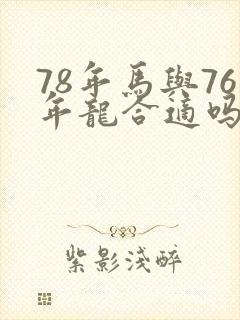 78年馬與76
年龍合適嗎
紫影淺醉